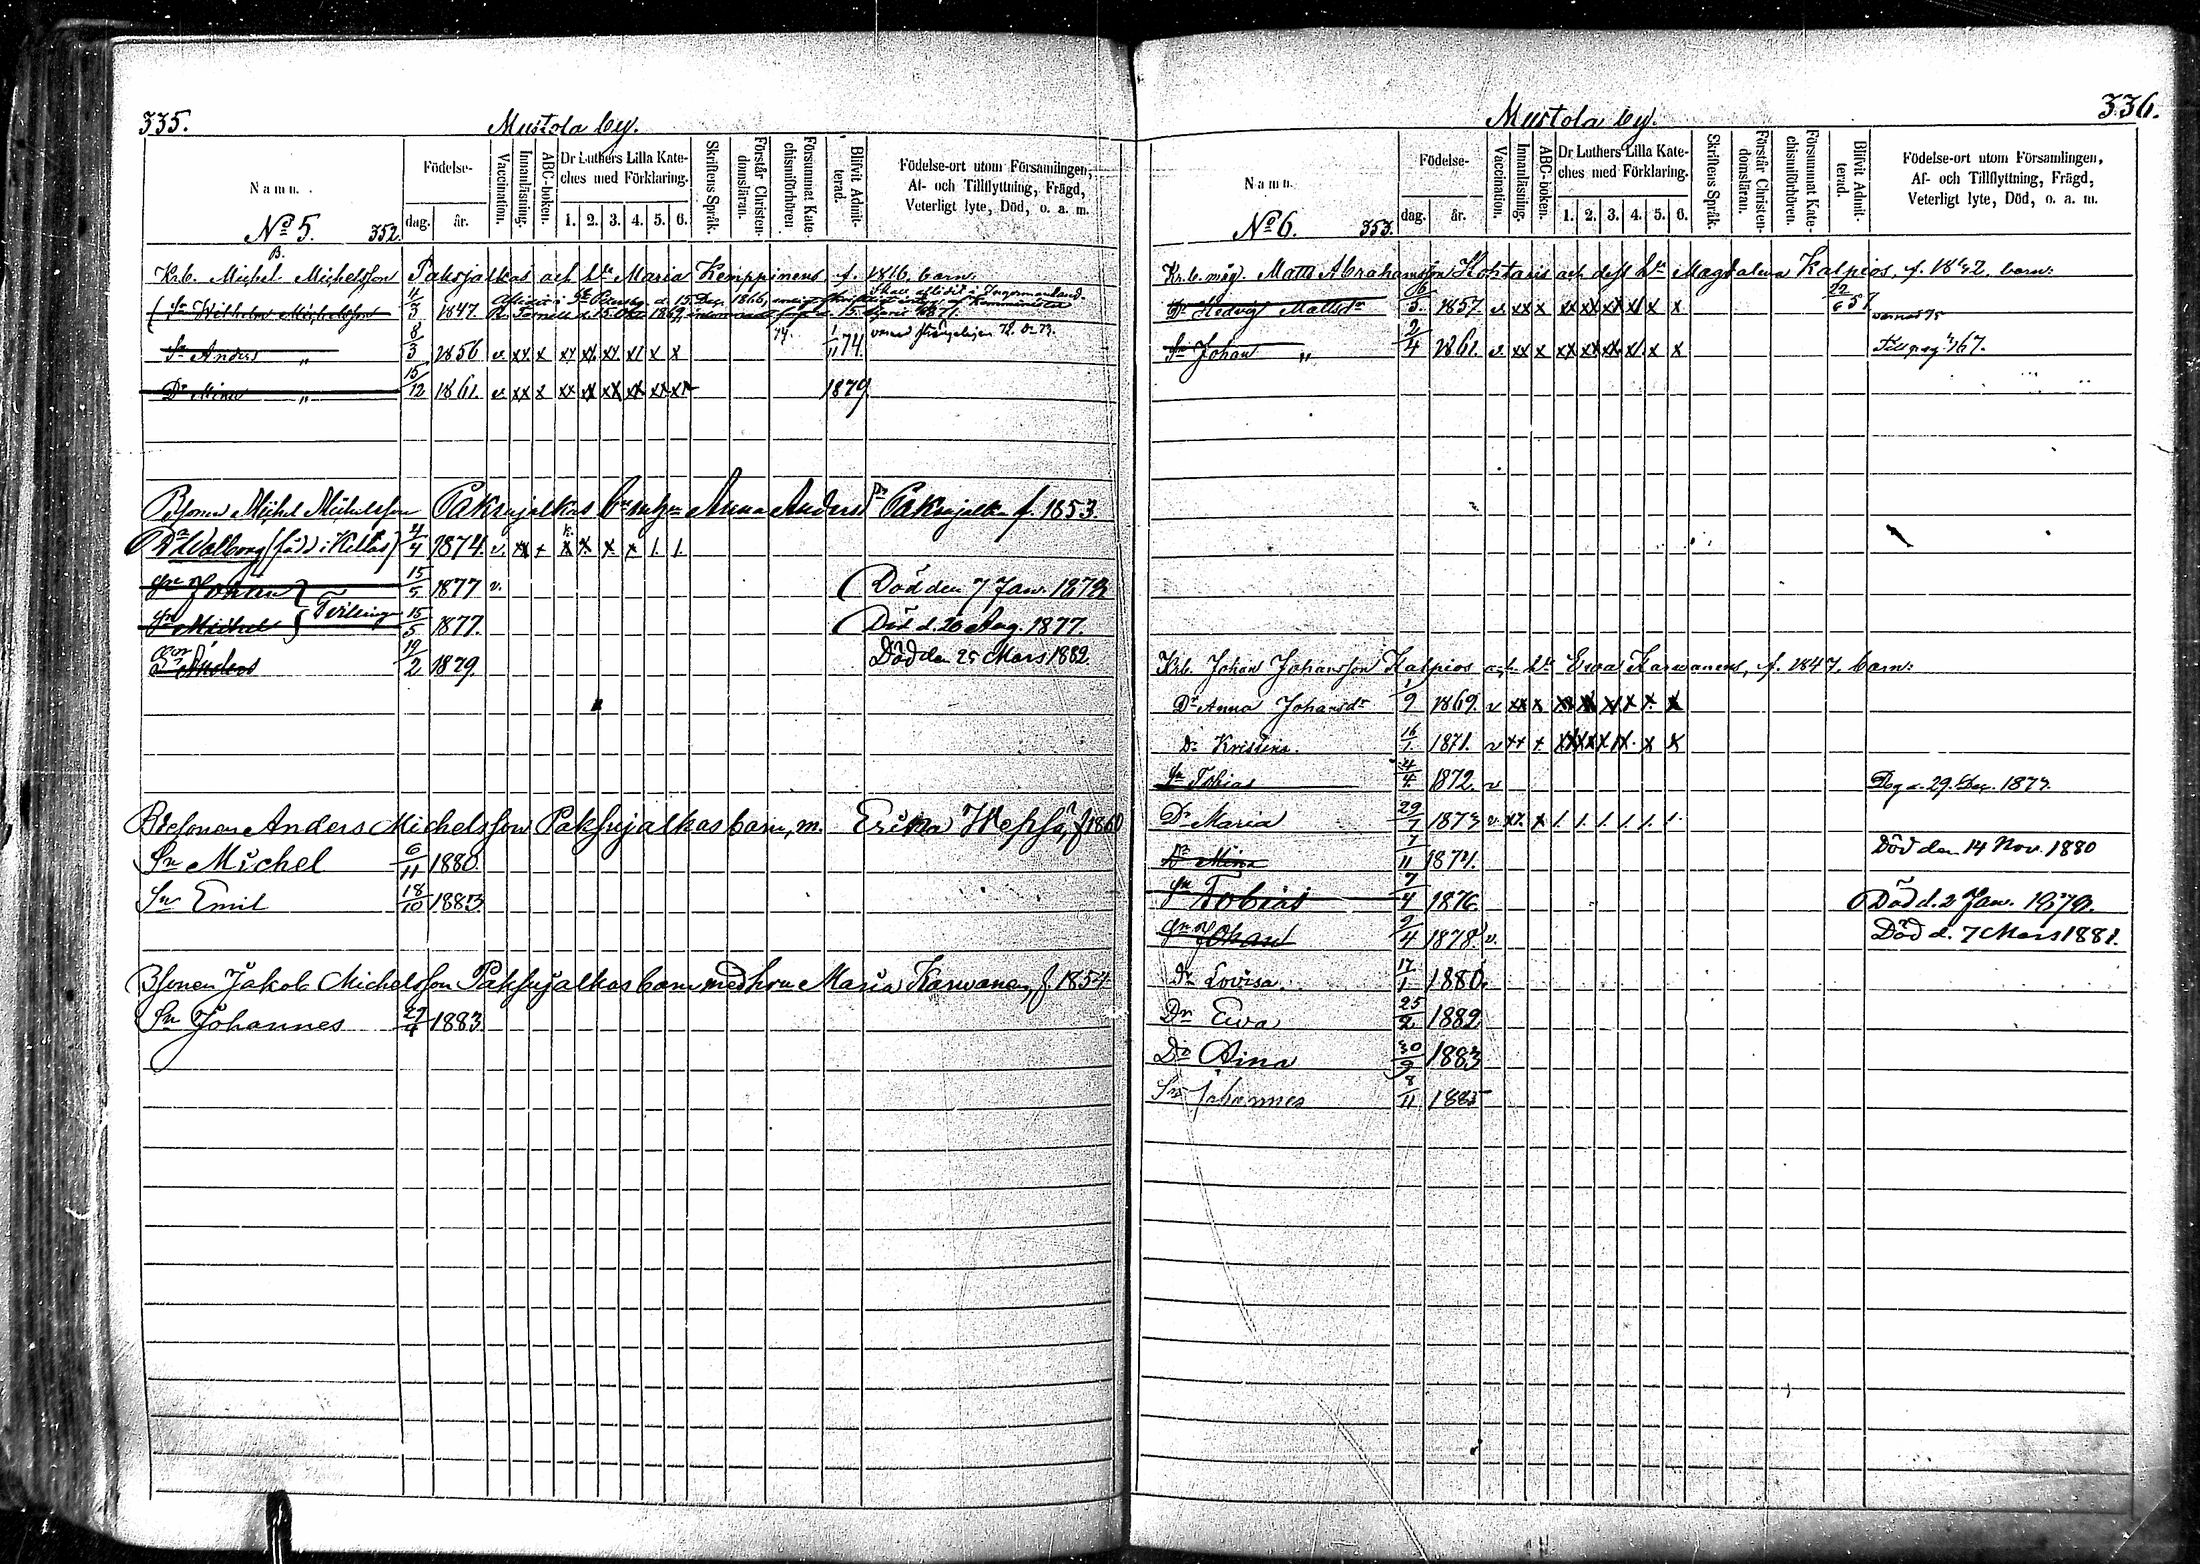 335.
Mustola by.
Namn.
Födelse-
dag. år.
Vaccination.
Innanläsning.
ABC-boken.
Dr Luthers Lilla Kate-
ches med Förklaring.
1. 2. 3. 4. 5. 6.
Skriftens Språk.
Förstår Christen-
domsläran.
Försummat Kate-
chismiförhören
Blifvit Admit-
terad.
Födelse-ort utom Församlingen,
Af- och Tillflyttning, Frägd,
Veterligt lyte, Död, o. a. m.
No 5. 352.
B.
Krb. Michel Michelsson Paksujalkas och h:u Maria Kemppinens, f. 1816, barn.
Sn Wilhelm Michelsson 4/3 1847.
Sn Anders " 8/3 1856 v. xx x xx xx xx xx x x 1/11 74.
Dr Mina " 15/12 1861. v. xx x xx xx xx xx xx xx 1879.
Bsonen Michel Michelsson Paksujalkas Anna Anders Dr Paksujalka f. 1853.
Dr Walborg (född i Kellas) 4/4 1874. v. xx x x x x x 1. 1.
Sn Johan 15/5 1877 v. Död den 7 Jan. 1879
Tvillingar
Sn Michel 15/5 1877. Död d. 26 Aug. 1877.
Son Anders 19/2 1879. Död den 25 Mars 1882.
Bdesonen Anders Michelsson Paksujalkas barn, m. Erika Hepsa, f 1860
Sn Michel 6/11 1880.
Sn Emil 18/10 1883.
Bsonen Jakob Michelsson Paksujalkas barn med hru Maria Karwanen, f. 1854
Sn Johannes 27/4 1883
336.
Mustola by.
Namn.
Födelse-
dag. år.
Vaccination.
Innanläsning.
ABC-boken.
Dr Luthers Lilla Kate-
ches med Förklaring.
1. 2. 3. 4. 5. 6.
Skriftens Språk.
Förstår Christen-
domsläran.
Försummat Kate-
chismiförhören.
Blifvit Admit-
terad.
Födelse-ort utom Församlingen,
Af- och Tillflyttning, Frägd,
Veterligt lyte, Död, o. a. m.
No 6. 353.
Kr. b. måg. Matts Abrahamsson Kohtaris och dess h:u Magdalena Kalpios, f. 1842, barn:
Dr Hedvig Mattsdr 6/5 1857. v. xx x xx xx xx xx x x
Sn Johan " 2/4 1861. v. xx x xx xx xx xx x x Till pag. 167.
Krb. Johan Johansson Kalpios och h:u Ewa Karwanens, f. 1847, barn:
Dr Anna Johansdr 1/9 1869. v xx x xx xx xx x x x
Dr Kristina. 16/1 1871. v xx x xx xx xx x x x
Sn Tobias 4/4 1872. v Dog d. 29. Dec. 1873.
Dr Maria 29/7 1873 v. xx. x 1. 1. 1. 1. 1. 1.
Dr Mina 7/11 1874. Död den 14 Nov. 1880
Sn Tobias 7/4 1876. Död d. 2 Jan. 1879.
Sn Johan 2/4 1878. v. Död d. 7 Mars 1881.
Dr Lovisa. 17/1 1880.
Dr Ewa 25/2 1882
Dr Aina 30/9 1883
Sn Johannes 8/11 1885